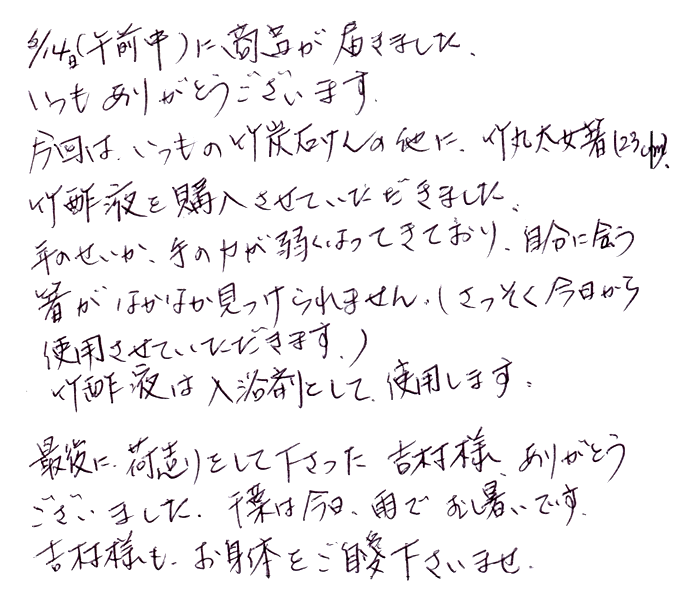 6/14日(午前中)に商品が届きました。
いつもありがとうございます。
今回は、いつもの竹炭石けんの他に、竹丸太女箸(23cm)、
竹酢液を購入させていただきました。
年のせいか、手の力が弱くなってきており、自分に合う
箸がなかなか見つけられません。(さっそく今日から
使用させていただきます。)
竹酢液は入浴剤として、使用します。
最後に、荷造りをして下さった吉村様、ありがとう
ございました。千葉は今日、雨でむし暑いです。
吉村様も、お身体をご自愛下さいませ。